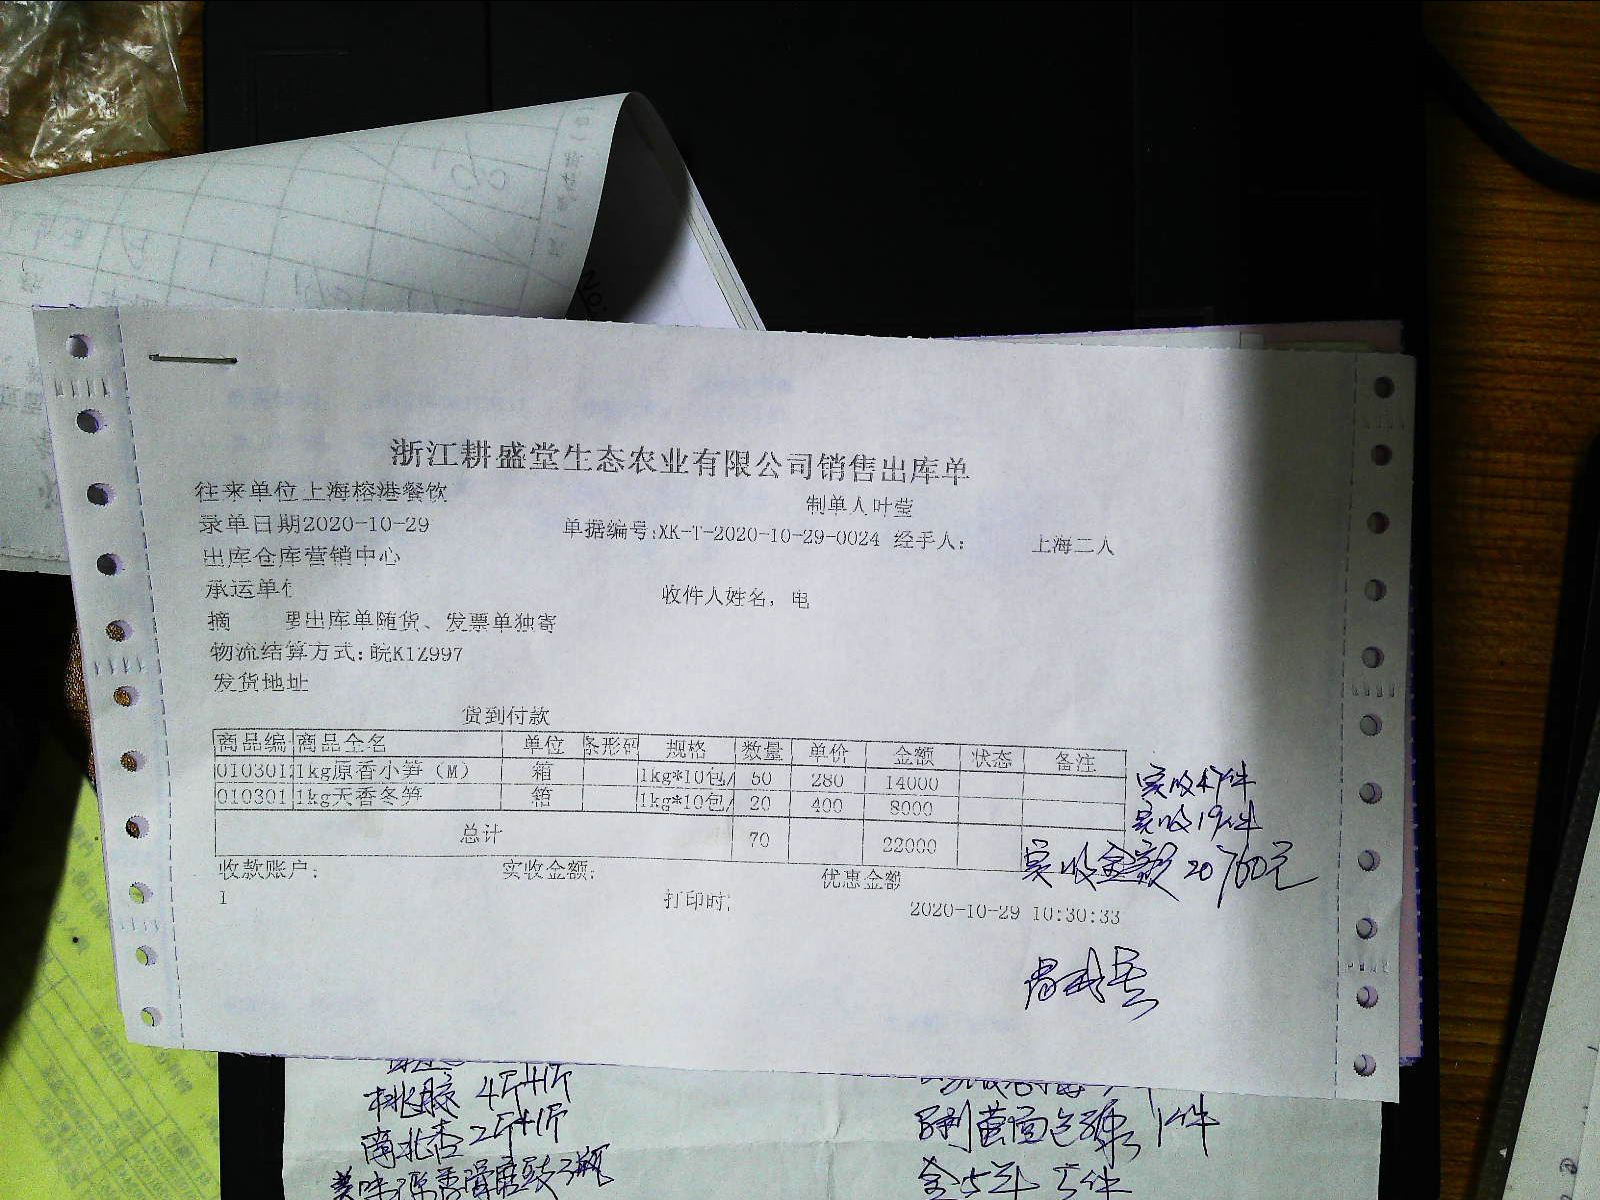 浙江耕盛堂生态农业有限公司销售出库单
往来单位上海榕港餐饮 制单人叶莹
录单日期2020-10-29 单据编号:XK-T-2020-10-29-0024 经手人: 上海二人
出库仓库营销中心
承运单位 收件人姓名, 电
摘 出库单随货、发票单独寄
物流结算方式:皖K1Z997
发货地址
货到付款
商品编 商品全名 单位 条形码 规格 数量 单价 金额 状态 备注
010301 1kg原香小笋(M) 箱 1kg*10包/ 50 280 14000 实收47件
010301 1kg天香冬笋 箱 1kg*10包/ 20 400 8000 实收19件
总计 70 22000
实收金额20760元
收款账户: 实收金额: 优惠金额
1 打印时: 2020-10-29 10:30:33
桃胶 4斤4斤
南北杏 2斤4斤
1件
5件